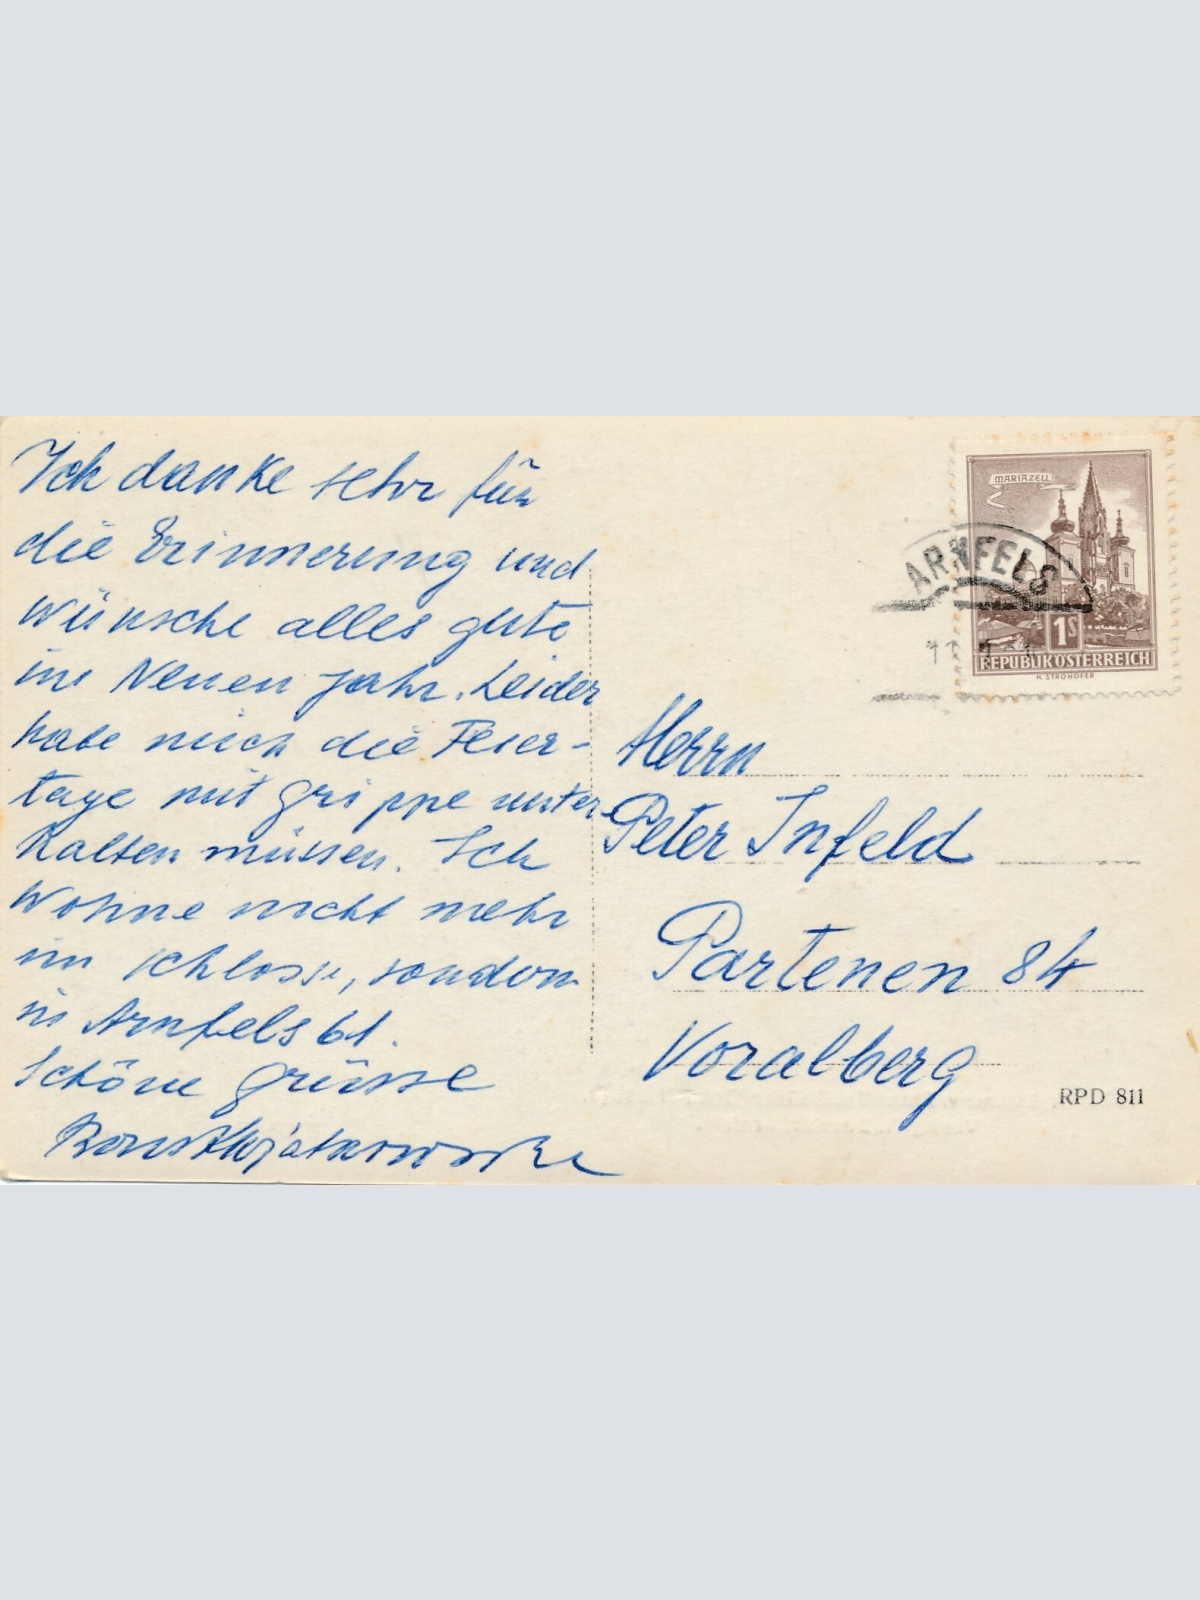 Ich danke sehr für
die Erinnerung und
Wünsche alles gute
im Neuen Jahr. Leider
habe mich die Feier-
tage mit Grippe unter
halten müssen. Ich
Wohne nicht mehr
im Schlosse, sondern
in Arnfels 61.
Schöne Grüsse
MARIAZELL
ARNFELS
1S
REPUBLIK ÖSTERREICH
H. STROHOFER
Herrn
Peter Infeld
Partenen 84
Voralberg
RPD 811